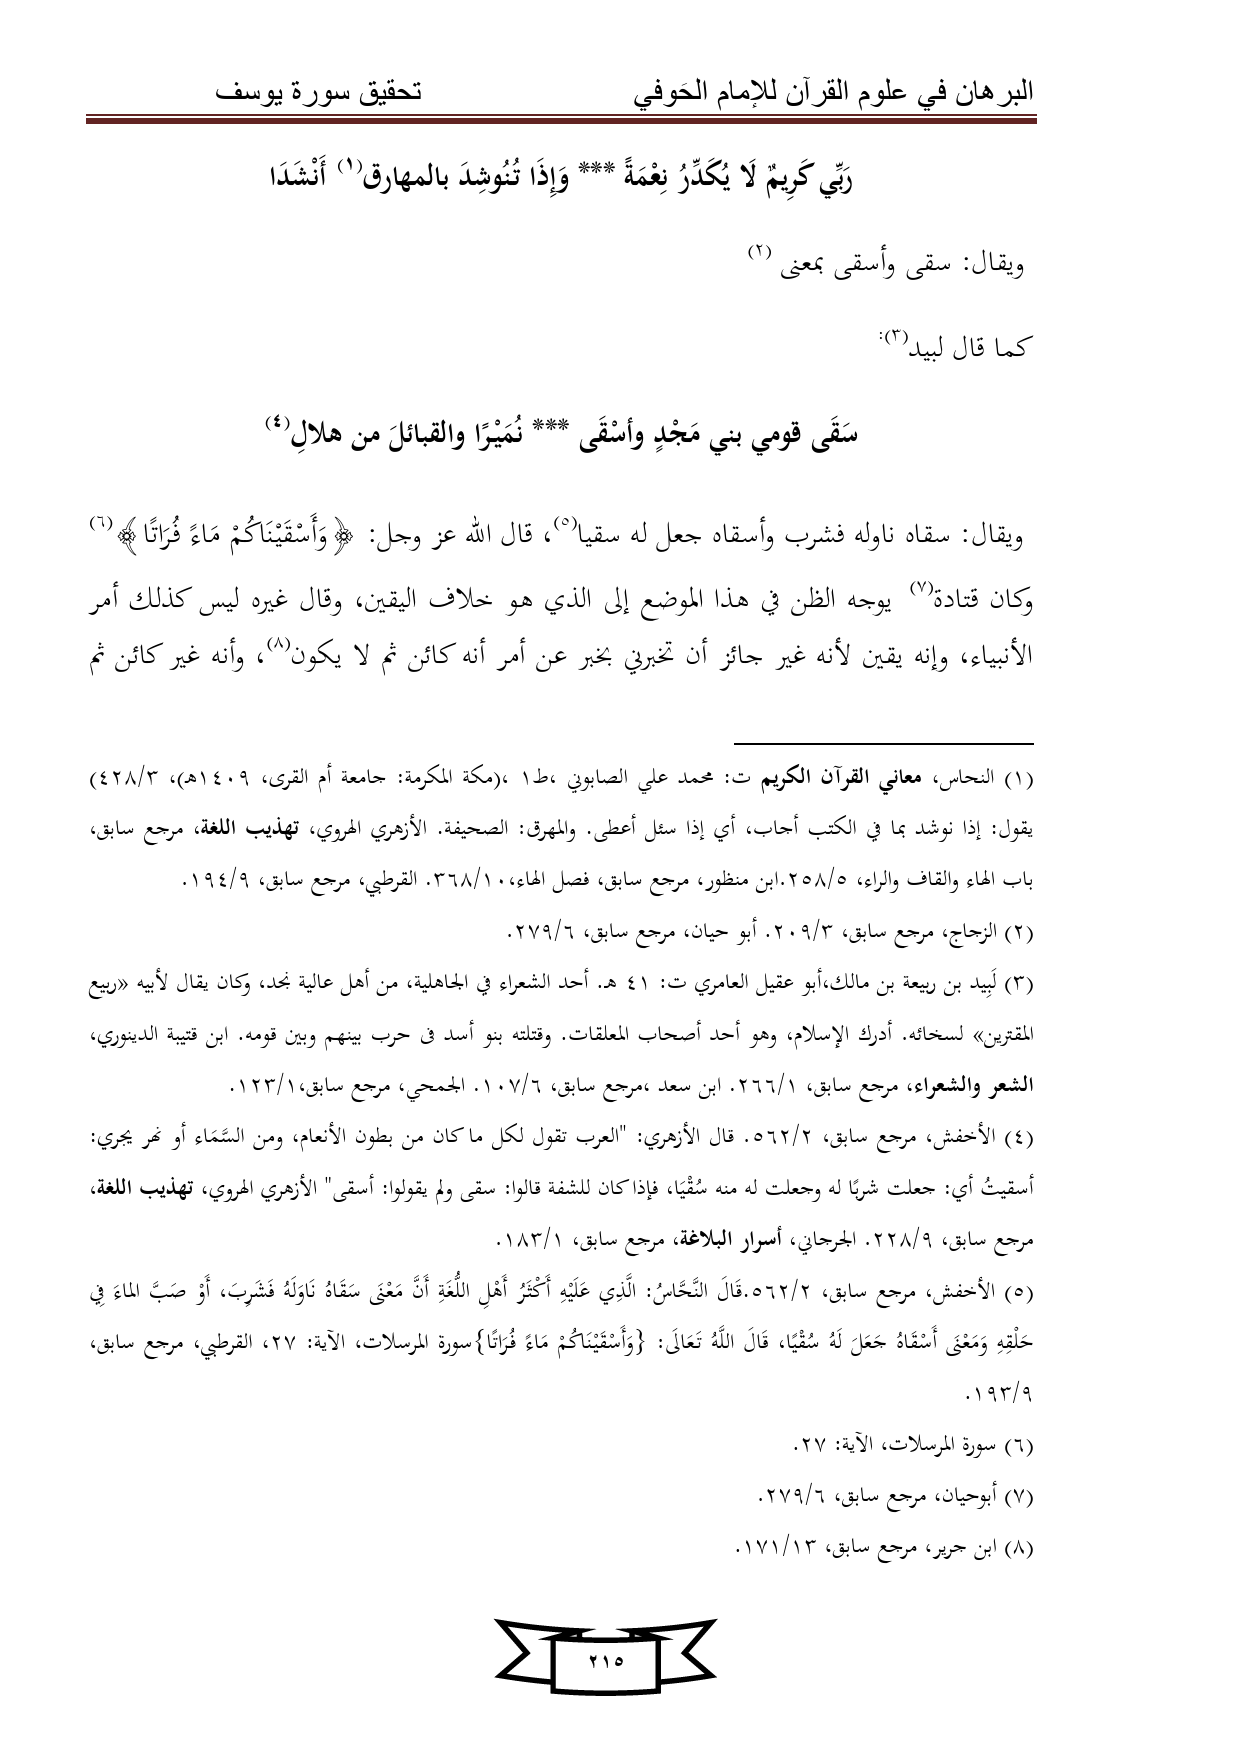 البرهان في علوم القرآن للإمام الحَوفي تحقيق سورة يوسف
رَبِّي كَرِيمٌ لَا يُكَدِّرُ نِعْمَةً *** وَإِذَا تُنُوشِدَ بالمهارق(١) أَنْشَدَا
ويقال: سقى وأسقى بمعنى (٢)
كما قال لبيد(٣):
سَقَى قومي بني مَجْدٍ وأسْقَى *** نُمَيْرًا والقبائلَ من هلالِ(٤)
ويقال: سقاه ناوله فشرب وأسقاه جعل له سقيا(٥)، قال الله عز وجل: ﴿وَأَسْقَيْنَاكُمْ مَاءً فُرَاتًا﴾(٦)
وكان قتادة(٧) يوجه الظن في هذا الموضع إلى الذي هو خلاف اليقين، وقال غيره ليس كذلك أمر
الأنبياء، وإنه يقين لأنه غير جائز أن تخبرني بخبر عن أمر أنه كائن ثم لا يكون(٨)، وأنه غير كائن ثم
(١) النحاس، معاني القرآن الكريم ت: محمد علي الصابوني ،ط١ ،(مكة المكرمة: جامعة أم القرى، ١٤٠٩هـ)، ٤٢٨/٣)
يقول: إذا نوشد بما في الكتب أجاب، أي إذا سئل أعطى. والمهرق: الصحيفة. الأزهري الهروي، تهذيب اللغة، مرجع سابق،
باب الهاء والقاف والراء، ٢٥٨/٥.ابن منظور، مرجع سابق، فصل الهاء،٣٦٨/١٠. القرطبي، مرجع سابق، ١٩٤/٩.
(٢) الزجاج، مرجع سابق، ٢٠٩/٣. أبو حيان، مرجع سابق، ٢٧٩/٦.
(٣) لَبِيد بن ربيعة بن مالك،أبو عقيل العامري ت: ٤١ هـ. أحد الشعراء في الجاهلية، من أهل عالية نجد، وكان يقال لأبيه «ربيع
المقترين» لسخائه. أدرك الإسلام، وهو أحد أصحاب المعلقات. وقتلته بنو أسد فى حرب بينهم وبين قومه. ابن قتيبة الدينوري،
الشعر والشعراء، مرجع سابق، ٢٦٦/١. ابن سعد ،مرجع سابق، ١٠٧/٦. الجمحي، مرجع سابق،١٢٣/١.
(٤) الأخفش، مرجع سابق، ٥٦٢/٢. قال الأزهري: "العرب تقول لكل ما كان من بطون الأنعام، ومن السَّمَاء أو نهر يجري:
أسقيتُ أي: جعلت شربًا له وجعلت له منه سُقْيَا، فإذا كان للشفة قالوا: سقى ولم يقولوا: أسقى" الأزهري الهروي، تهذيب اللغة،
مرجع سابق، ٢٢٨/٩. الجرجاني، أسرار البلاغة، مرجع سابق، ١٨٣/١.
(٥) الأخفش، مرجع سابق، ٥٦٢/٢.قَالَ النَّحَّاسُ: الَّذِي عَلَيْهِ أَكْثَرُ أَهْلِ اللُّغَةِ أَنَّ مَعْنَى سَقَاهُ نَاوَلَهُ فَشَرِبَ، أَوْ صَبَّ الماءَ فِي
حَلْقِهِ وَمَعْنَى أَسْقَاهُ جَعَلَ لَهُ سُقْيًا، قَالَ اللَّهُ تَعَالَى: {وَأَسْقَيْنَاكُمْ مَاءً فُرَاتًا}سورة المرسلات، الآية: ٢٧، القرطبي، مرجع سابق،
١٩٣/٩.
(٦) سورة المرسلات، الآية: ٢٧.
(٧) أبوحيان، مرجع سابق، ٢٧٩/٦.
(٨) ابن جرير، مرجع سابق، ١٧١/١٣.
٢١٥